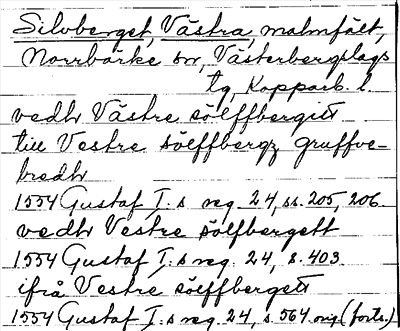 Silvberget, Västra, malmfält,
Norrbärke sn, Västerbergslags
tg, Kopparb. l.
vedh Västre sölffbergitt
till Vestre sölffbergz gruffve-
bredh
1554 Gustaf I:s reg. 24, ss. 205, 206.
vedh Vestre sölfbergett
1554 Gustaf I:s reg. 24, s. 403
ifrå Vestre sölffbergett
1554 Gustaf I:s reg. 24, s. 564 orig (forts.)